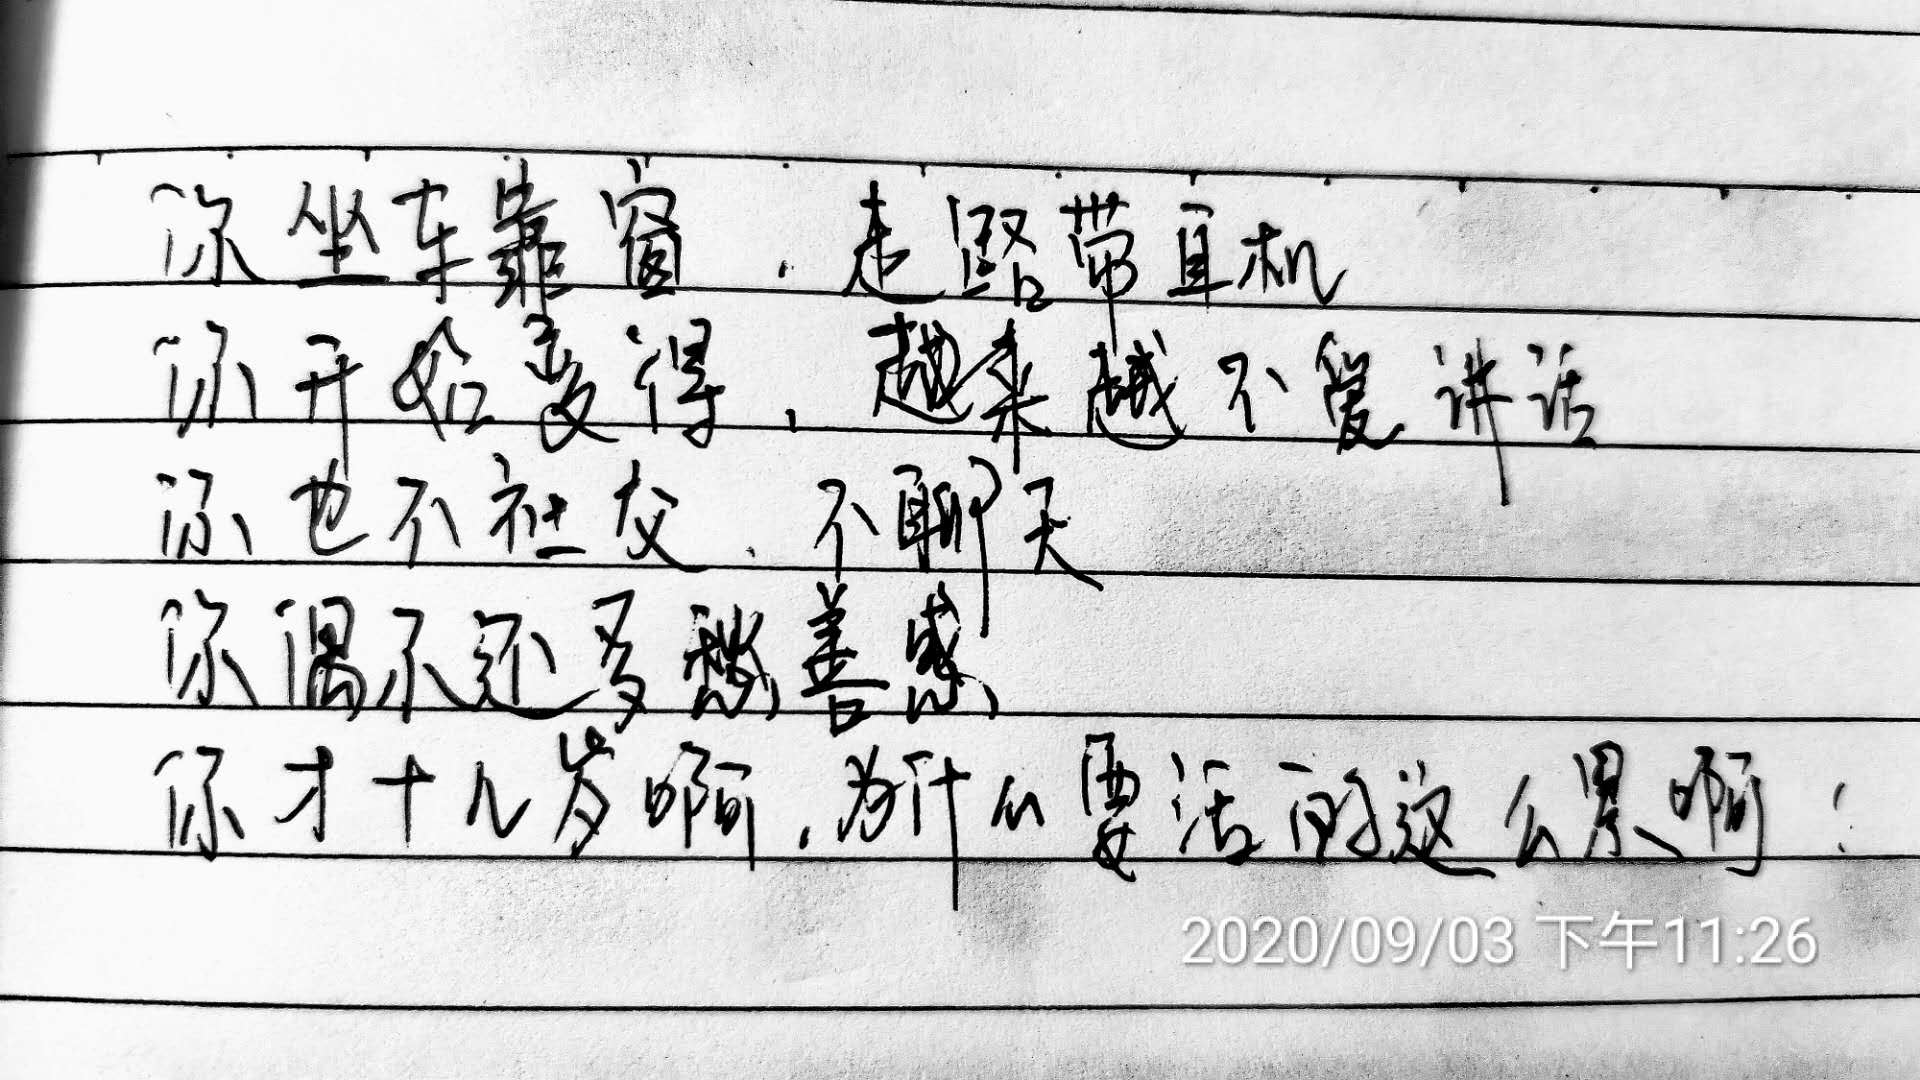 你坐车靠窗，走路带耳机
你开始变得，越来越不爱讲话
你也不社交、不聊天
你偶尔还多愁善感
你才十几岁啊，为什么要活的这么累啊！
2020/09/03 下午11:26